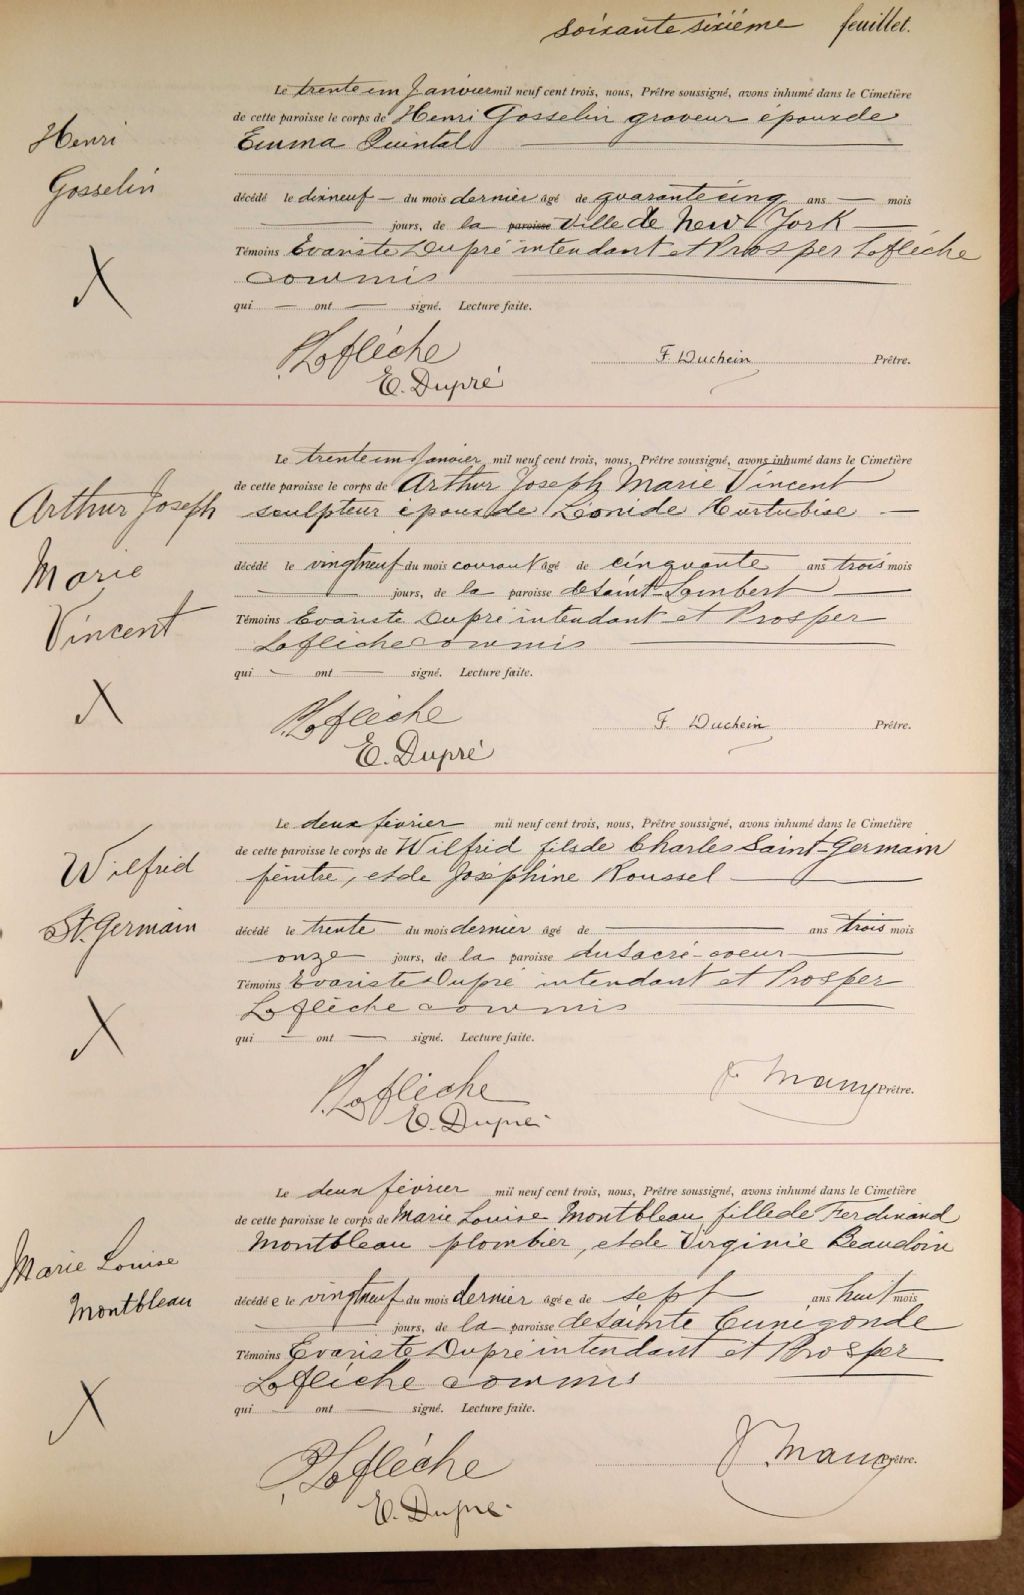 soixante sixième feuillet.
Le trente un Janvier mil neuf cent trois, nous, Prêtre soussigné, avons inhumé dans le Cimetière
de cette paroisse le corps de Henri Gosselin graveur époux de
Emma Quintal
Henri
Gosselin
décédé le dixneuf du mois dernier âgé de quarante cinq ans — mois
jours, de la paroisse Ville de New York
Témoins Evariste Dupré intendant et Prosper Laflèche
commis
X
qui — ont — signé. Lecture faite.
P. Laflèche
F. Duchein Prêtre.
E. Dupré
Le trente un Janvier mil neuf cent trois, nous, Prêtre soussigné, avons inhumé dans le Cimetière
de cette paroisse le corps de Arthur Joseph Marie Vincent
sculpteur époux de Léonide Hurtubise —
Arthur Joseph
Marie
Vincent
décédé le vingt neuf du mois courant âgé de cinquante ans trois mois
jours, de la paroisse de Saint Lambert
Témoins Evariste Dupré intendant et Prosper
Laflèche commis
qui — ont — signé. Lecture faite.
X
P. Laflèche
F. Duchein Prêtre.
E. Dupré
Le deux février mil neuf cent trois, nous, Prêtre soussigné, avons inhumé dans le Cimetière
de cette paroisse le corps de Wilfrid fils de Charles Saint-Germain
peintre, et de Joséphine Roussel
Wilfrid
St. Germain
décédé le trente du mois dernier âgé de — ans trois mois
onze jours, de la paroisse du Sacré-coeur
Témoins Evariste Dupré intendant et Prosper
Laflèche commis
X
qui — ont — signé. Lecture faite.
P. Laflèche
Prêtre.
E. Dupré
Le deux février mil neuf cent trois, nous, Prêtre soussigné, avons inhumé dans le Cimetière
de cette paroisse le corps de Marie Louise Montbleau fille de Ferdinand
Montbleau plombier, et de Virginie Beaudoin
Marie Louise
Montbleau
décédée le vingt neuf du mois dernier âgée de sept ans huit mois
jours, de la paroisse de Sainte Cunégonde
Témoins Evariste Dupré intendant et Prosper
Laflèche commis
X
qui — ont — signé. Lecture faite.
P. Laflèche
Prêtre.
E. Dupré